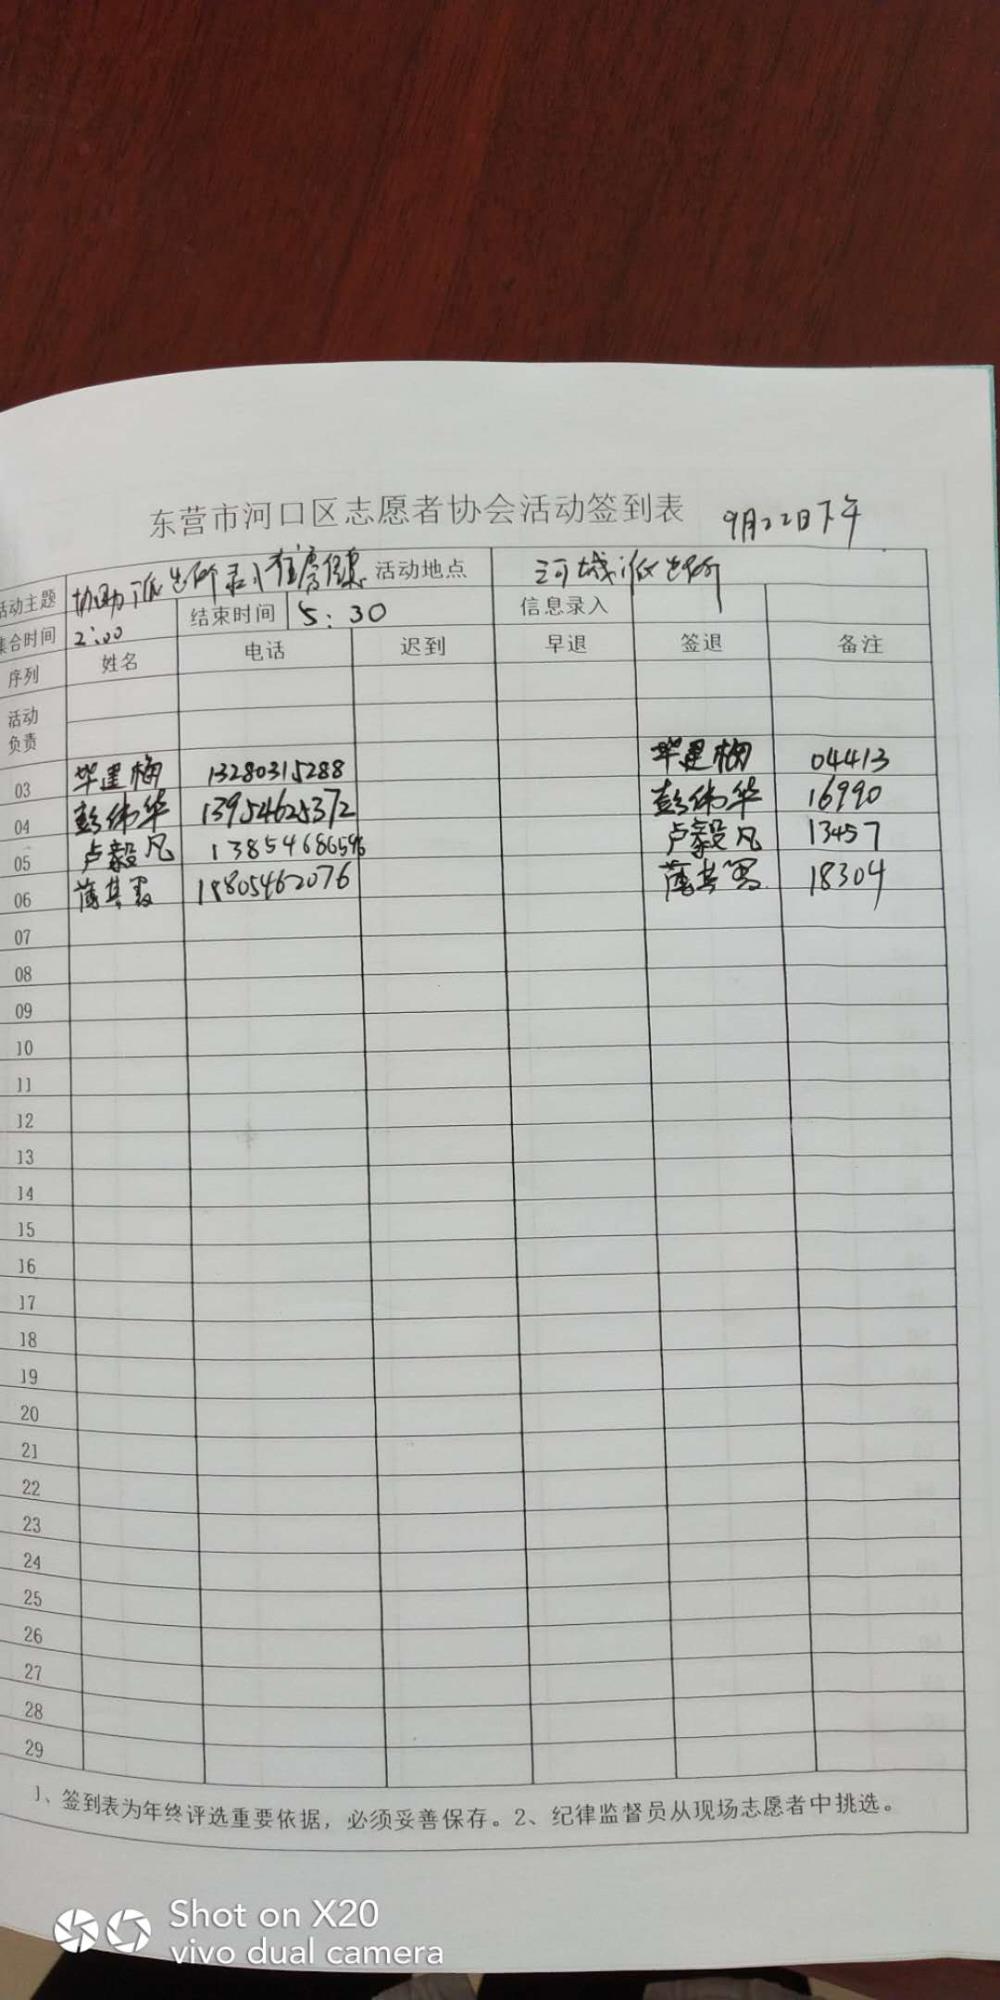 东营市河口区志愿者协会活动签到表 9月22日下午
活动主题 协助派出所录入 信息 活动地点 河城派出所
集合时间 2:00 结束时间 5:30 信息录入
序列 姓名 电话 迟到 早退 签退 备注
活动
负责
03 毕建梅 13280315288 毕建梅 04413
04 彭伟华 13954625372 彭伟华 16990
05 卢毅凡 13854686596 卢毅凡 13457
06 蒲其 18805462076 蒲其 18304
07
08
09
10
11
12
13
14
15
16
17
18
19
20
21
22
23
24
25
26
27
28
29
1、签到表为年终评选重要依据，必须妥善保存。2、纪律监督员从现场志愿者中挑选。
Shot on X20
vivo dual camera